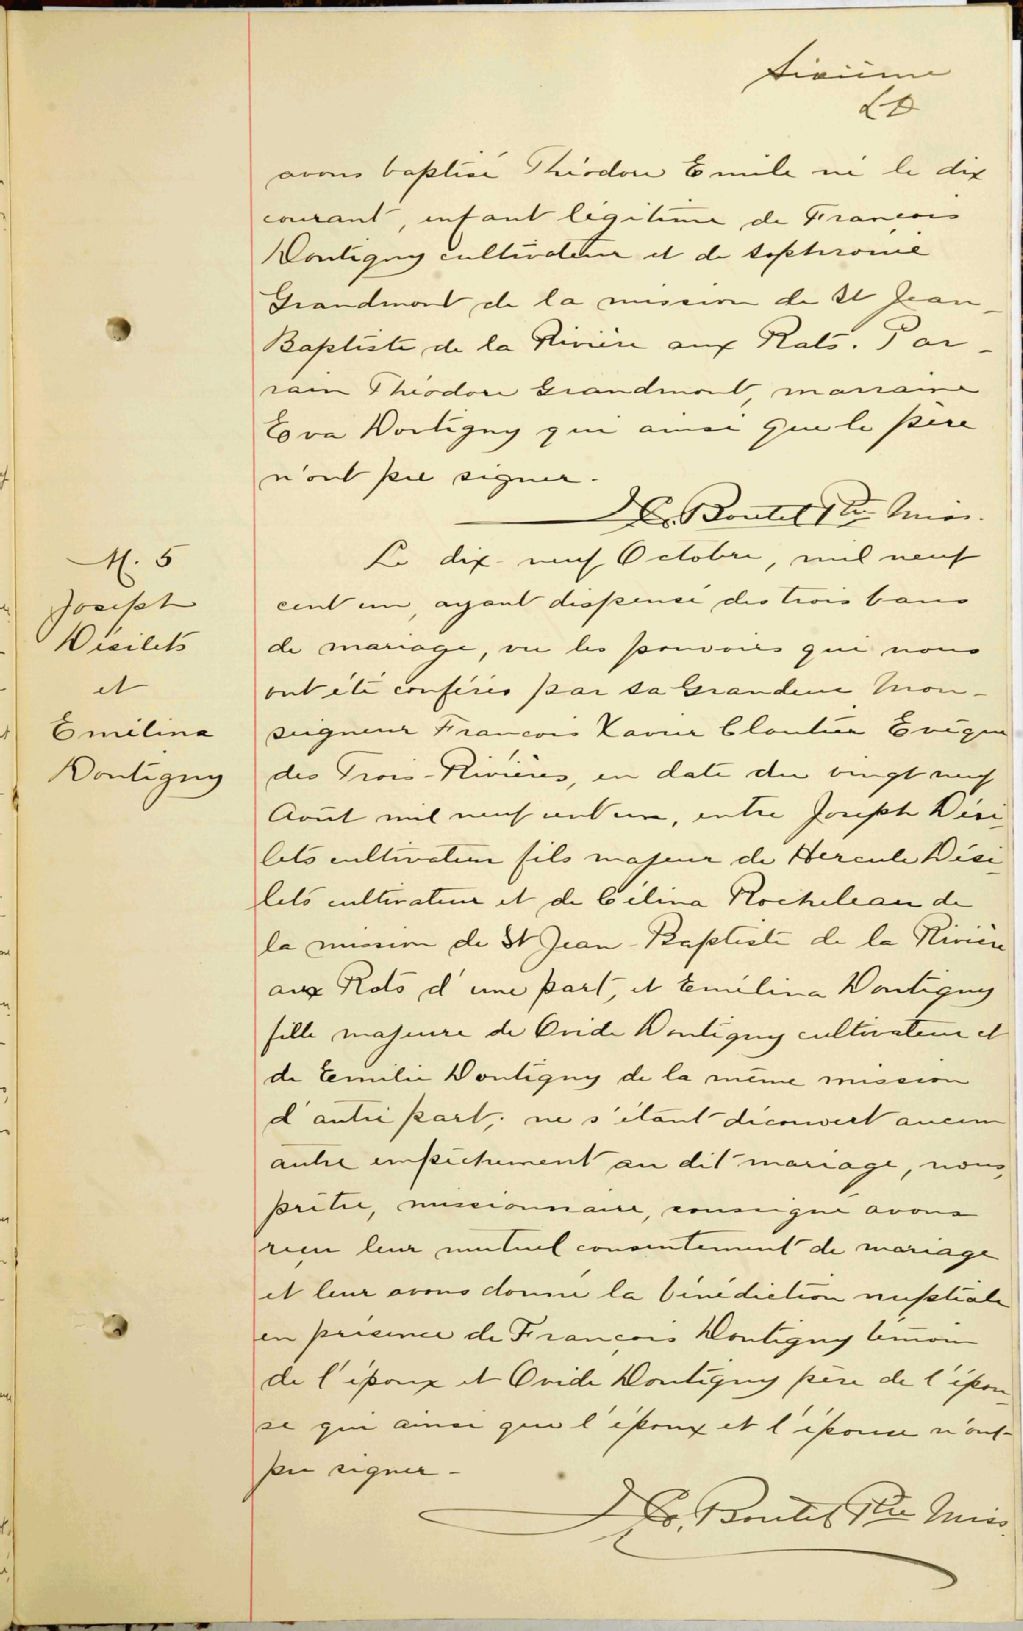 Sixième
LD
avons baptisé Théodore Emile né le dix
courant, enfant légitime de François
Dontigny cultivateur et de Sophronie
Grandmont de la mission de St Jean-
Baptiste de la Rivière aux Rats. Par-
rain Théodore Grandmont, marraine
Eva Dontigny qui ainsi que le père
n'ont pu signer.
Boutet Ptre Miss.
M. 5
Joseph
Désilets
et
Emélina
Dontigny
Le dix-neuf Octobre, mil neuf
cent un, ayant dispensé des trois bans
de mariage, vu les pouvoirs qui nous
ont été conférés par sa Grandeur Mon-
seigneur François Xavier Cloutier Evêque
des Trois-Rivières, en date du vingt neuf
Août mil neuf cent un, entre Joseph Dési-
lets cultivateur fils majeur de Hercule Dési-
lets cultivateur et de Célina Rocheleau de
la mission de St Jean-Baptiste de la Rivière
aux Rats d'une part, et Emélina Dontigny
fille majeure de Ovide Dontigny cultivateur et
de Emilie Dontigny de la même mission
d'autre part; ne s'étant découvert aucun
autre empêchement au dit mariage, nous,
prêtre, missionnaire, soussigné avons
reçu leur mutuel consentement de mariage
et leur avons donné la bénédiction nuptiale
en présence de François Dontigny témoin
de l'époux et Ovide Dontigny père de l'épou-
se qui ainsi que l'époux et l'épouse n'ont
pu signer-
Boutet Ptre Miss.